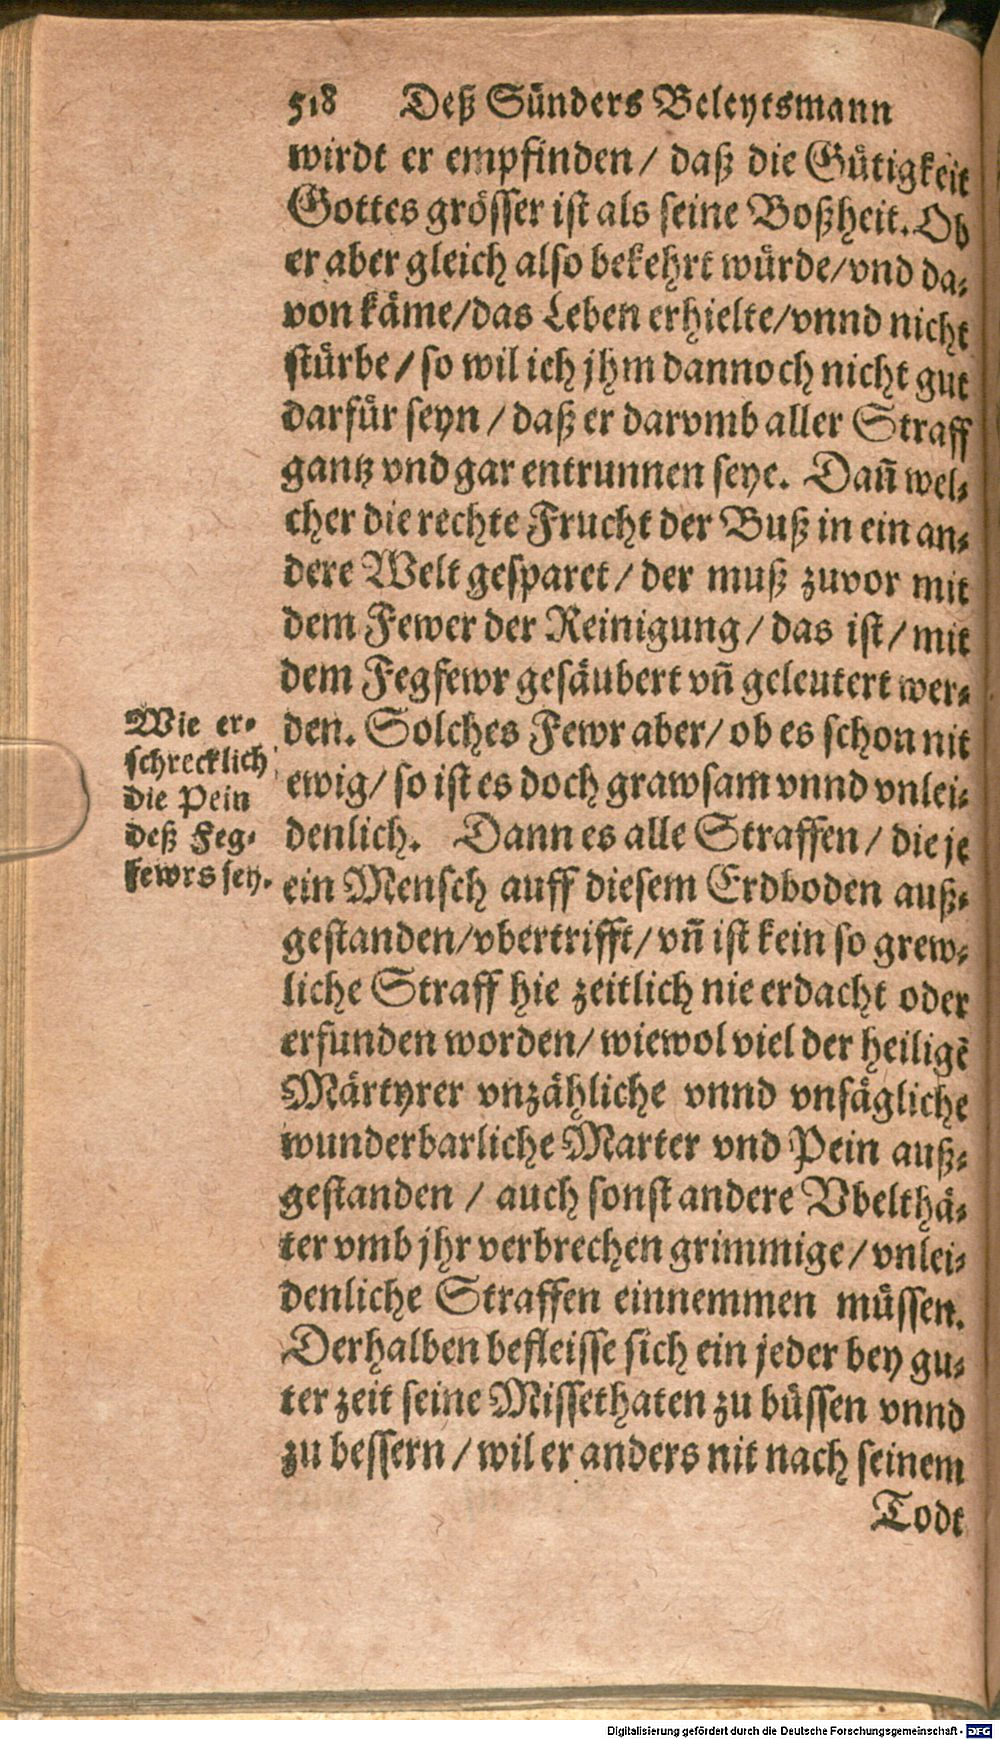 518 Deß Sünders Beleytsmann
wirdt er empfinden/ daß die Gütigkeit
Gottes grösser ist als seine Boßheit. Ob
er aber gleich also bekehrt würde/vnd da-
von käme/das Leben erhielte/vnnd nicht
stürbe/ so wil ich jhm dannoch nicht gut
darfür seyn / daß er darvmb aller Straff
gantz vnd gar entrunnen seye. Dañ wel-
cher die rechte Frucht der Buß in ein an-
dere Welt gesparet/ der muß zuvor mit
dem Fewer der Reinigung/ das ist/ mit
dem Fegfewr gesäubert vñ geleutert wer-
den. Solches Fewr aber/ ob es schon nit
ewig/ so ist es doch grawsam vnnd vnlei-
denlich. Dann es alle Straffen/ die je
ein Mensch auff diesem Erdboden auß-
gestanden/vbertrifft/ vñ ist kein so grew-
liche Straff hie zeitlich nie erdacht oder
erfunden worden/ wiewol viel der heiligẽ
Märtyrer vnzähliche vnnd vnsägliche
wunderbarliche Marter vnd Pein auß-
gestanden / auch sonst andere Vbelthä-
ter vmb jhr verbrechen grimmige/ vnlei-
denliche Straffen einnemmen müssen.
Derhalben befleisse sich ein jeder bey gu-
ter zeit seine Missethaten zu büssen vnnd
zu bessern / wil er anders nit nach seinem
Todt
Wie er-
schrecklich
die Pein
deß Feg-
fewrs sey.
Digitalisierung gefördert durch die Deutsche Forschungsgemeinschaft - DFG